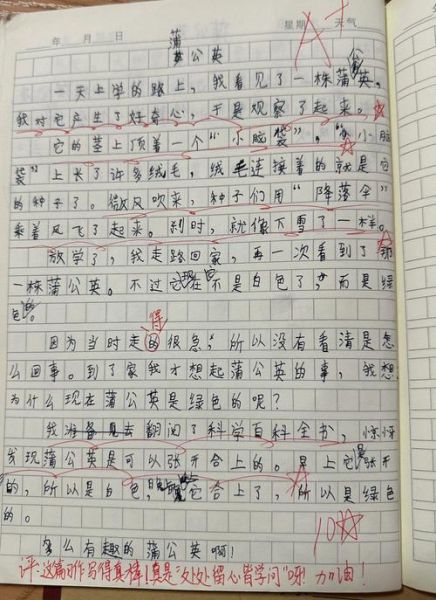 A+
年 月 日 星期 天气
蒲公英
一天上学的路上，我看见了一株蒲公英。
我对它产生了好奇心，于是观察了起来。
它的茎上顶着一个“小脑袋”，“小脑
袋”上长了许多绒毛，绒毛连接着的就是它
的种子了。微风吹来，种子们用“降落伞”
乘着风飞了起来。到时，就像下雪了一样。
放学了，我走路回家，再一次看到了那
一株蒲公英。不过它现在不是白色了，而是绿
色的。
得
因为当时走的很急，所以没有看清是怎
么回事。到了家我才想起蒲公英的事，我想
为什么现在蒲公英是绿色的呢？
我准备去翻阅了科学百科全书，
发现蒲公英是可以张开合上的。早上它是张开
的，所以是白色，晚上它合上了，所以是绿色
的。
10
多么有趣的蒲公英啊！
评：这篇习作写得真棒！真是“处处留心皆学问”呀！加油！